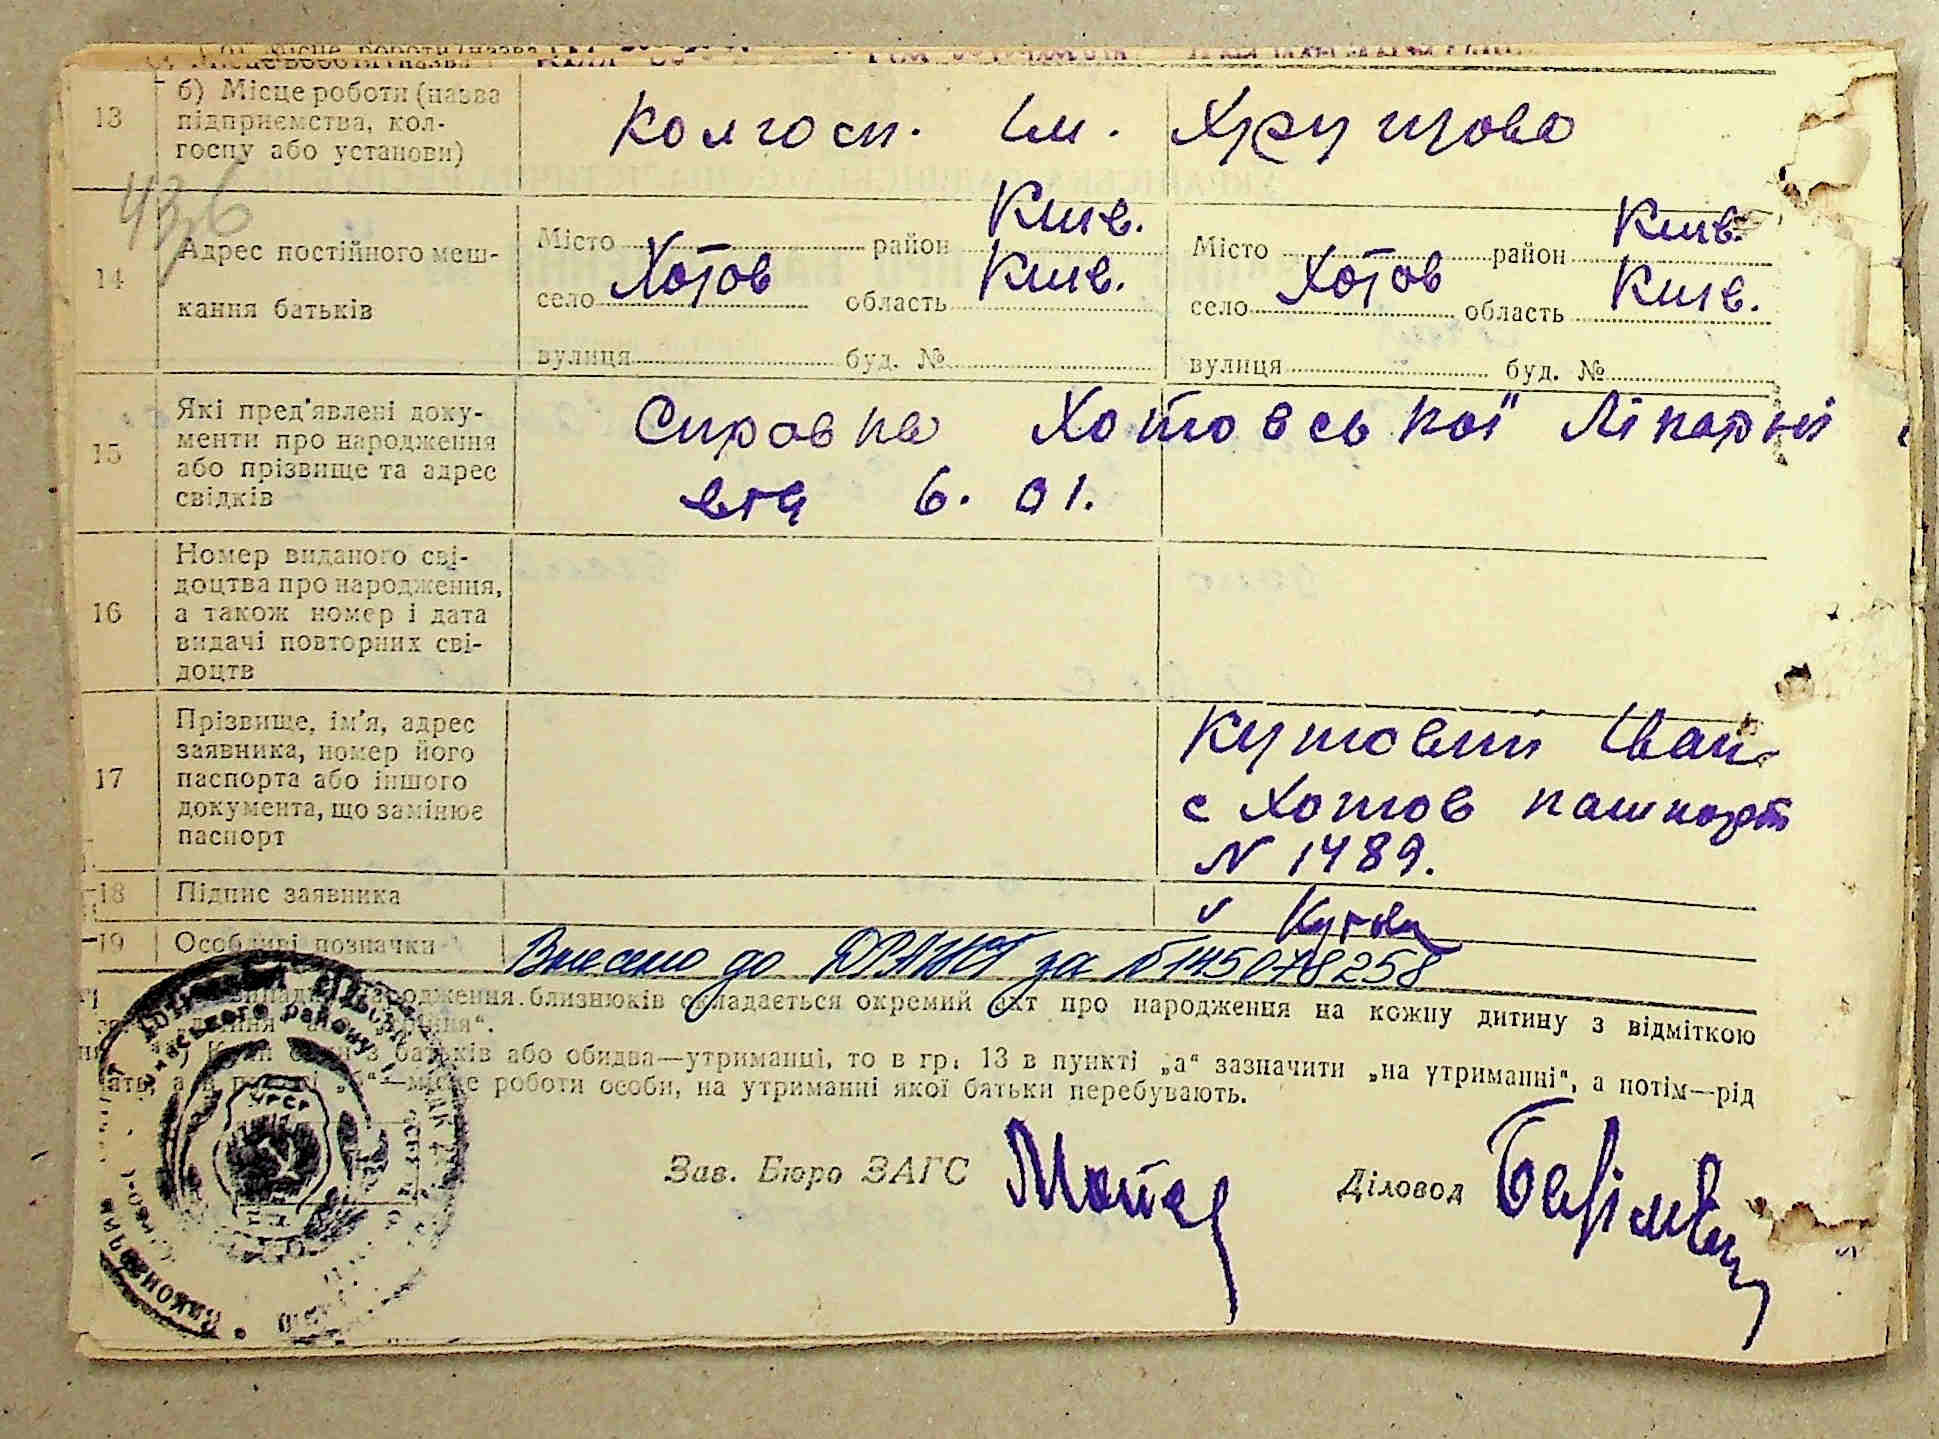 13
б) Місце роботи (назва
підприємства, кол-
госпу або установи)
Колгосп. Ім. Хрущова
43б
14
Адрес постійного меш-
кання батьків
Місто район Київ.
село Хотов область Київ.
вулиця буд. №
Місто район Київ.
село Хотов область Київ.
вулиця буд. №
15
Які пред'явлені доку-
менти про народження
або прізвище та адрес
свідків
Справка Хотовської Лікарні
від 6. 01.
16
Номер виданого сві-
доцтва про народження,
а також номер і дата
видачі повторних сві-
доцтв
17
Прізвище, ім'я, адрес
заявника, номер його
паспорта або іншого
документа, що замінює
паспорт
Кутовий Іван
с Хотов пашпорт
N 1489.
18
Підпис заявника
v Кутов
19
Особливі позначки
Внесено до ДРАЦСГ за №145078258
народження близнюків складається окремий акт про народження на кожну дитину з відміткою
батьків або обидва—утриманці, то в гр. 13 в пункті „а“ зазначити „на утриманні“, а потім—рід
„б“—місце роботи особи, на утриманні якої батьки перебувають.
Зав. Бюро ЗАГС
Діловод